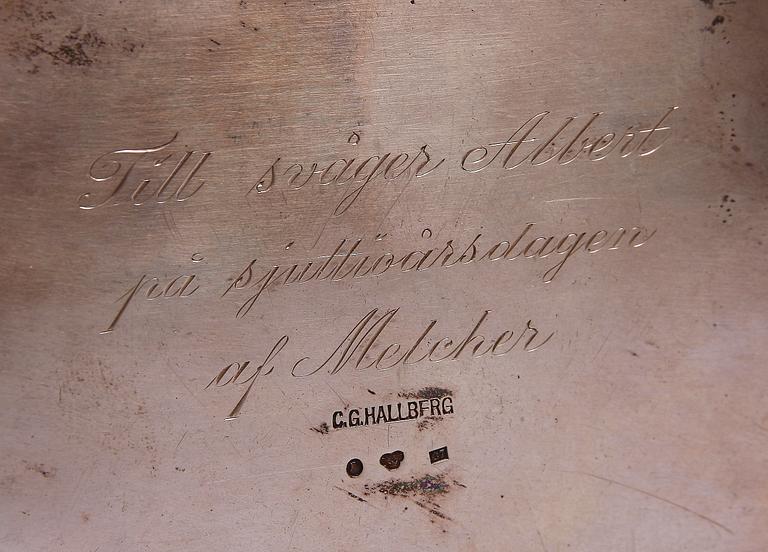 Till svåger Albert
på sjuttioårsdagen
af Melcher
C.G.HALLBERG